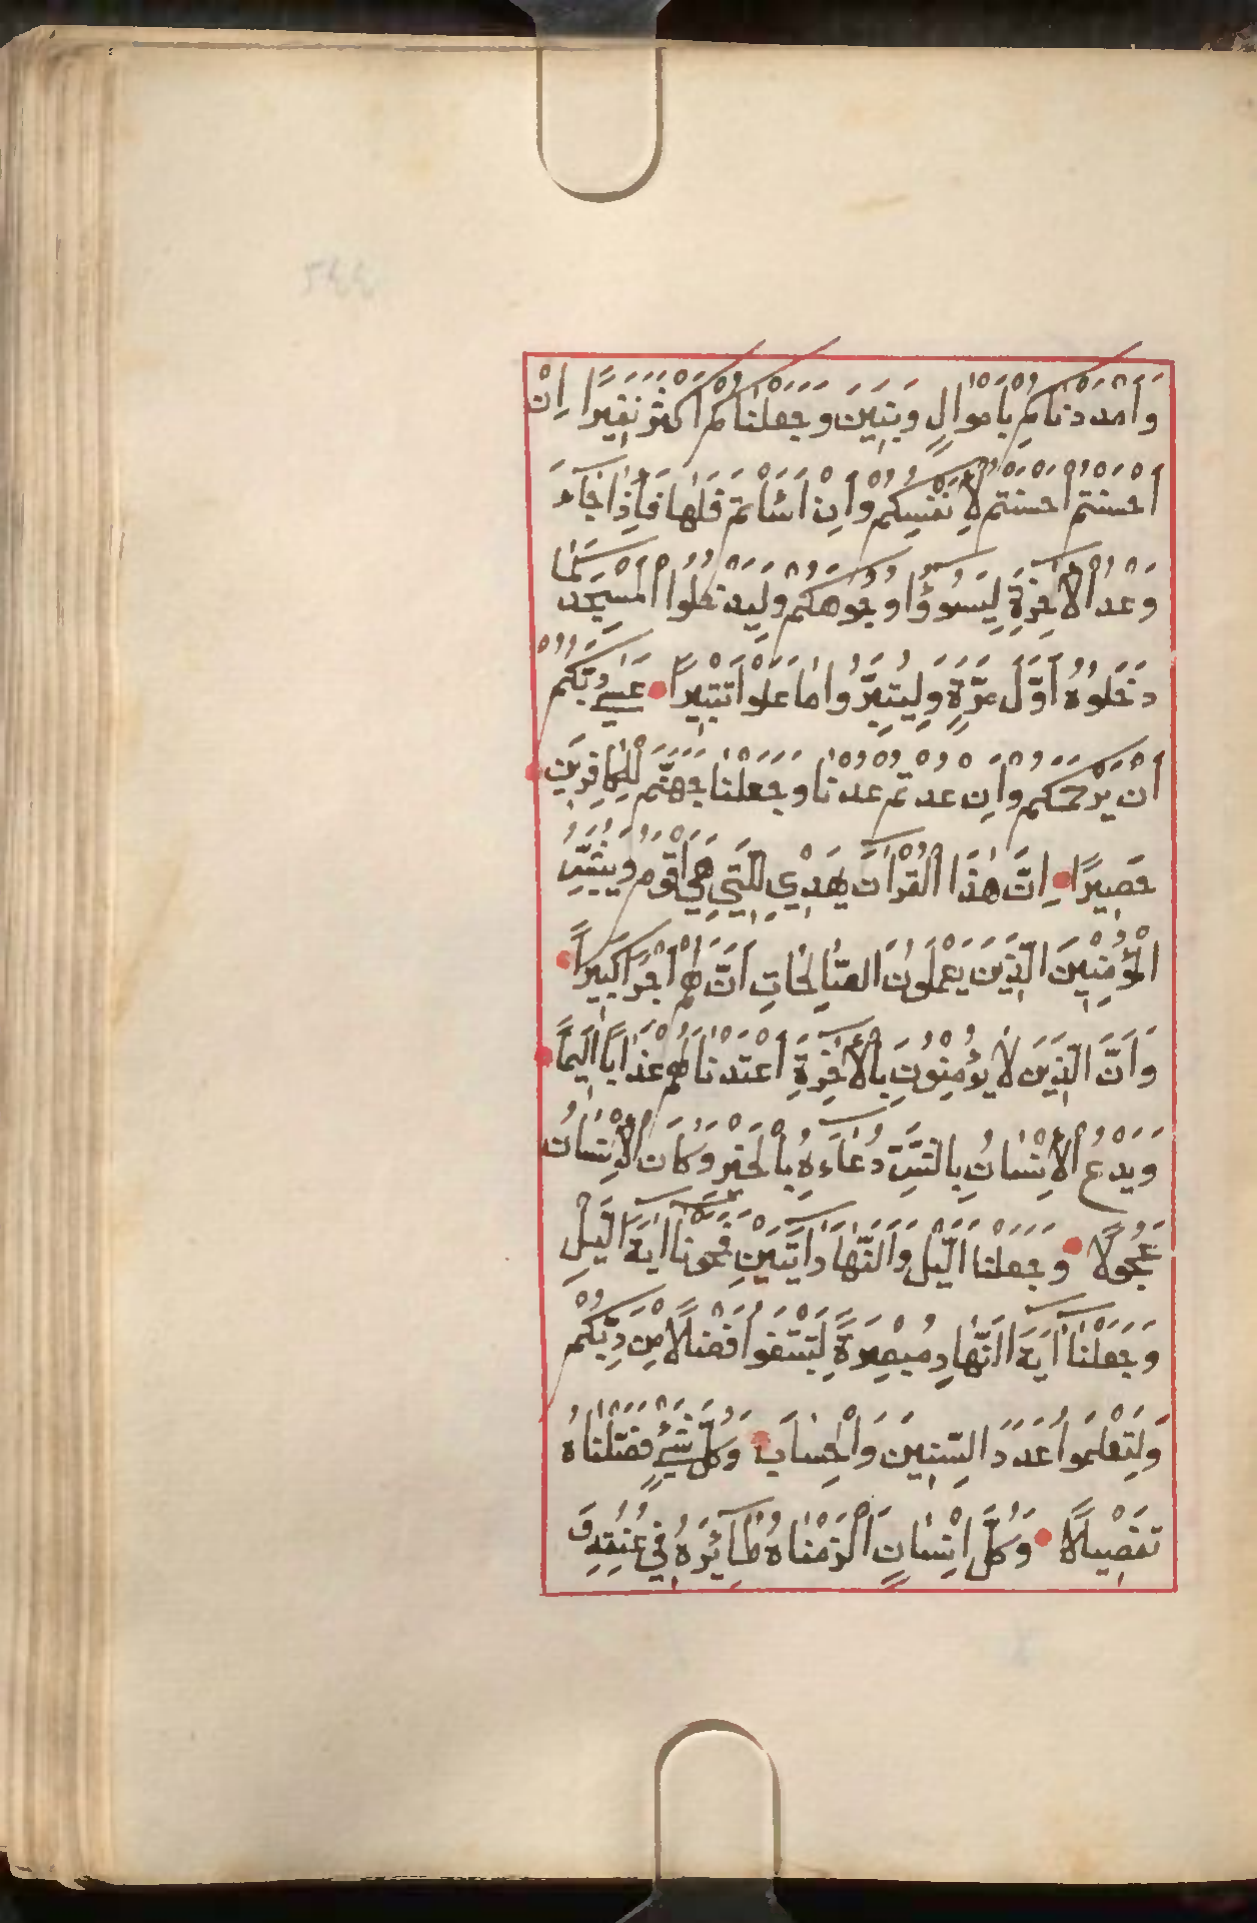 وَاَمْدَدْنَاكُمْ بِاَمْوَالٍ وَبَنِينَ وَجَعَلْنَاكُمْ اَكْثَرَ نَفِيرًا اِنْ
اَحْسَنْتُمْ اَحْسَنْتُمْ لِاَنْفُسِكُمْ وَاِنْ اَسَأْتُمْ فَلَهَا فَاِذَا جَآءَ
وَعْدُ الْاٰخِرَةِ لِيَسُوؤُا وُجُوهَكُمْ وَلِيَدْخُلُوا الْمَسْجِدَ كَمَا
دَخَلُوهُ اَوَّلَ مَرَّةٍ وَلِيُتَبِّرُوا مَا عَلَوْا تَتْبِيرًا عَسٰى رَبُّكُمْ
اَنْ يَرْحَمَكُمْ وَاِنْ عُدْتُمْ عُدْنَا وَجَعَلْنَا جَهَنَّمَ لِلْكَافِرِينَ
حَصِيرًا اِنَّ هٰذَا الْقُرْاٰنَ يَهْدِي لِلَّتِي هِيَ اَقْوَمُ وَيُبَشِّرُ
الْمُؤْمِنِينَ الَّذِينَ يَعْمَلُونَ الصَّالِحَاتِ اَنَّ لَهُمْ اَجْرًا كَبِيرًا
وَاَنَّ الَّذِينَ لَا يُؤْمِنُونَ بِالْاٰخِرَةِ اَعْتَدْنَا لَهُمْ عَذَابًا اَلِيمًا
وَيَدْعُ الْاِنْسَانُ بِالشَّرِّ دُعَآءَهُ بِالْخَيْرِ وَكَانَ الْاِنْسَانُ
عَجُولًا وَجَعَلْنَا الَّيْلَ وَالنَّهَارَ اٰيَتَيْنِ فَمَحَوْنَآ اٰيَةَ الَّيْلِ
وَجَعَلْنَآ اٰيَةَ النَّهَارِ مُبْصِرَةً لِتَبْتَغُوا فَضْلًا مِنْ رَبِّكُمْ
وَلِتَعْلَمُوا عَدَدَ السِّنِينَ وَالْحِسَابَ وَكُلَّ شَيْءٍ فَصَّلْنَاهُ
تَفْصِيلًا وَكُلَّ اِنْسَانٍ اَلْزَمْنَاهُ طَآئِرَهُ فِي عُنُقِهِ وَ